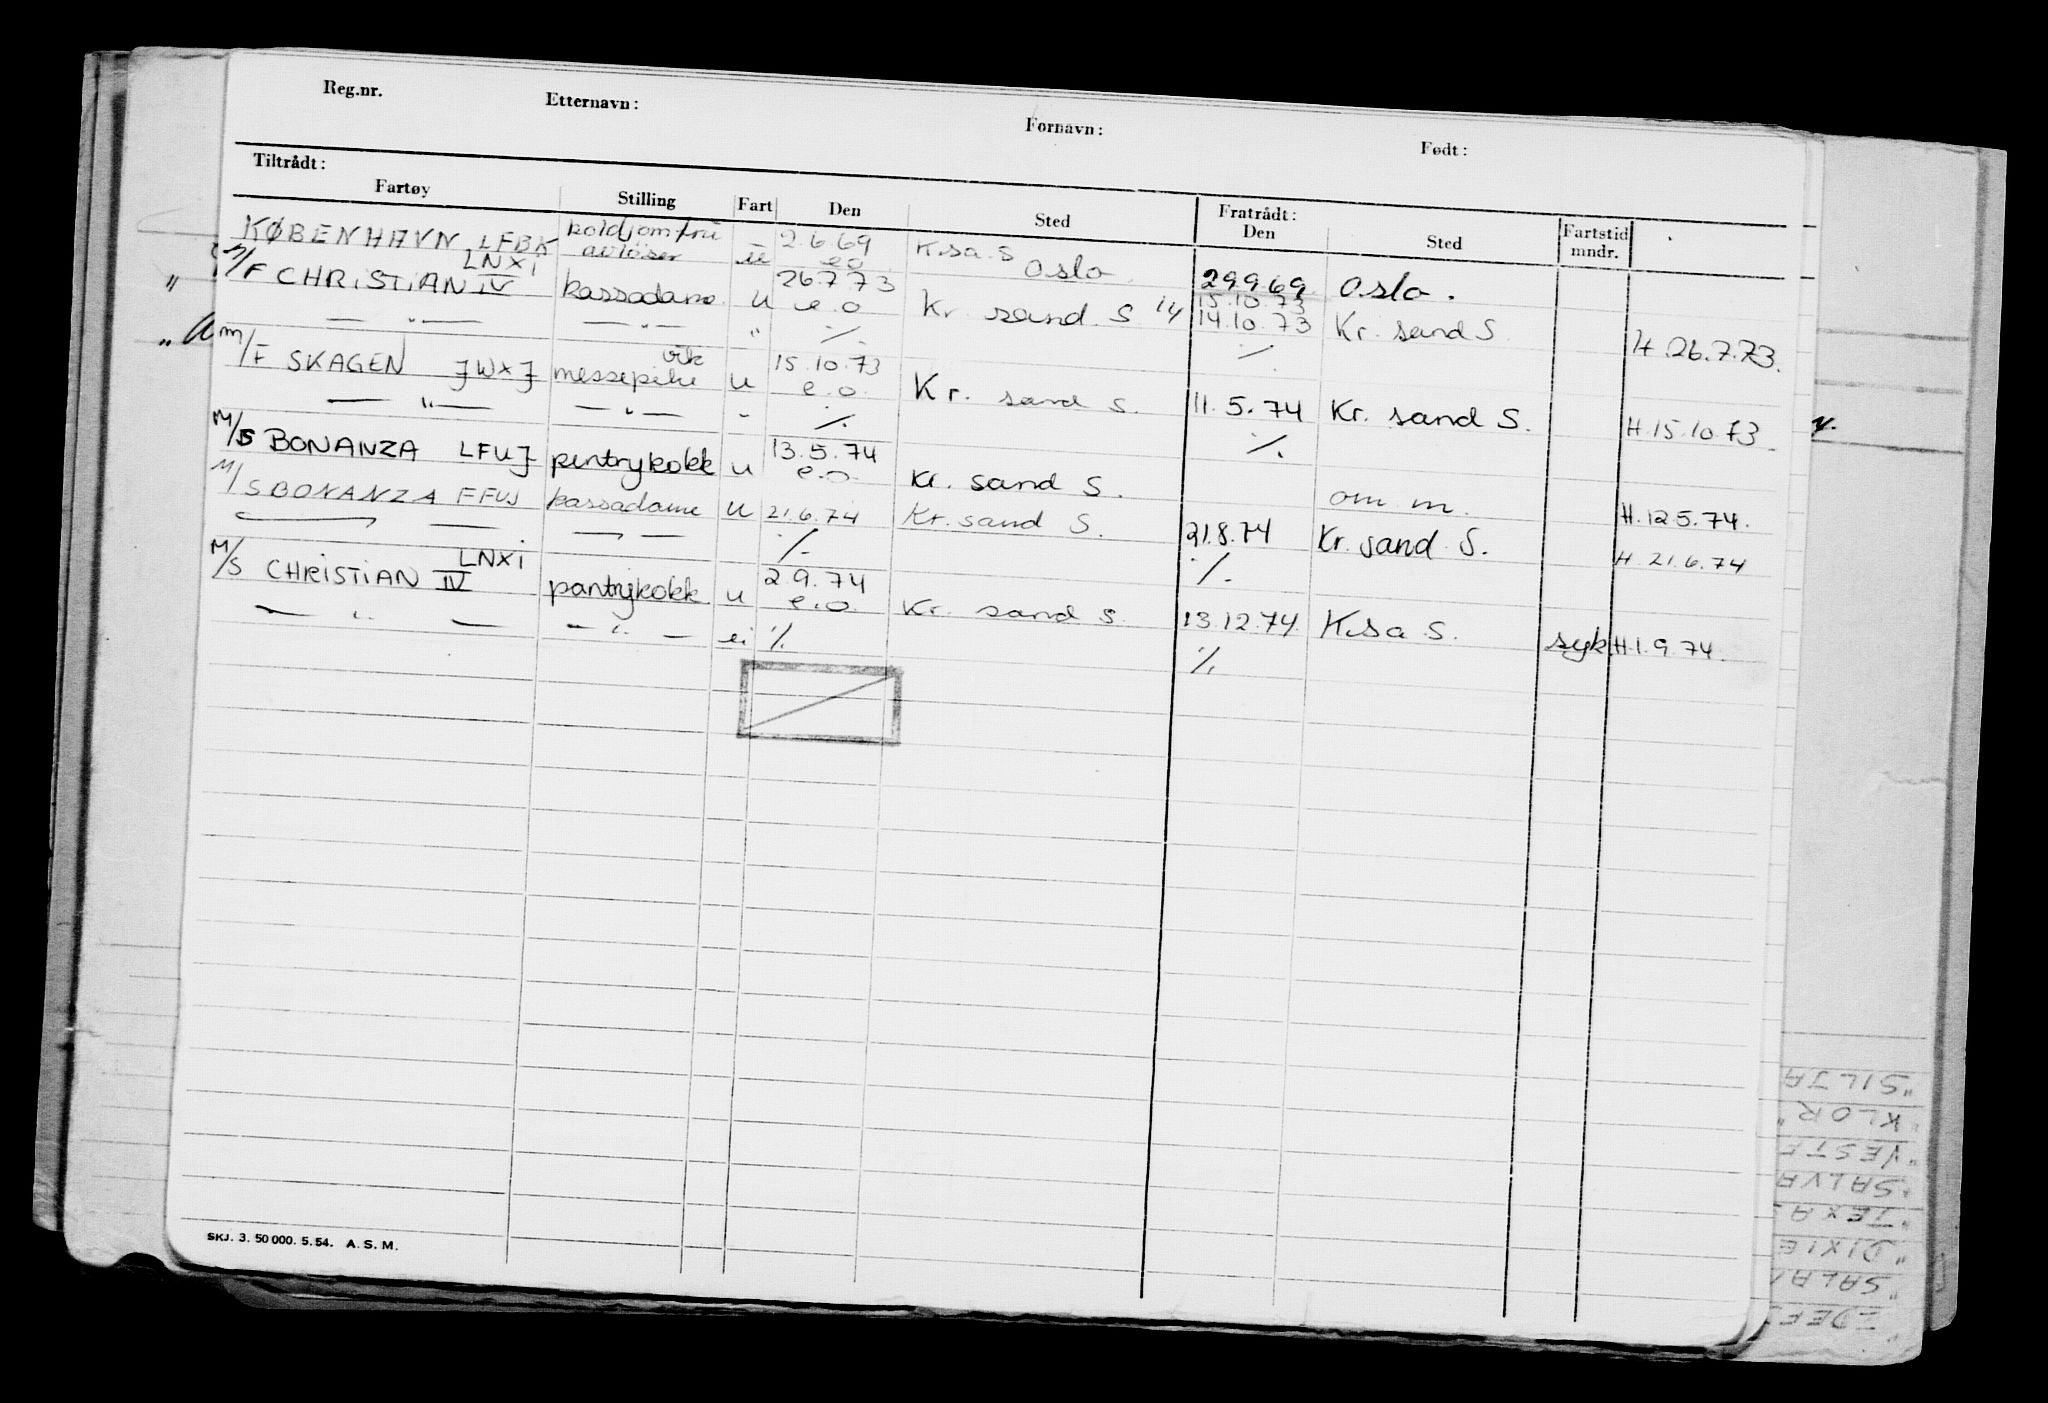 Reg.nr. Etternavn: Fornavn: Født:
Tiltrådt: Fratrådt:
Fartøy Stilling Fart Den Sted Den Sted Fartstid mndr.
KØBENHAVN LFBK koldjomfru - 2.6.69 K.sa. S
avløser u e.o Oslo 29.9.69 Oslo.
M/F CHRISTIAN IV LNXI kassadame u 26.7.73 e.o Kr. sand. S 14 15.10.73 14.10.73 Kr. sand S H. 26.7.73.
— " — — " — " ./. ./.
m/F SKAGEN JWXJ messepike vik u 15.10.73 e.o. Kr. sand S. 11.5.74 Kr. sand S. H. 15.10.73.
— " — — " — - ./. ./.
M/S BONANZA LFUJ pentrykokk u 13.5.74 e.o. Kr. sand S. om m. H. 12.5.74.
M/S BONANZA FFUJ kassadame u 21.6.74 Kr. sand S. 21.8.74 Kr. sand S. H. 21.6.74
— — — — ./. ./.
M/S CHRISTIAN IV LNXI pantrykokk u 2.9.74 e.o. Kr. sand S. 13.12.74 K.sa S. syk H. 1.9.74.
— " — — " — ei ./. ./.
SKJ. 3. 50 000. 5. 54. A. S. M.
"SILJA
"KLOR"
"VESTF
"SALVA
"TEXAS
"DIXIE
"SALA